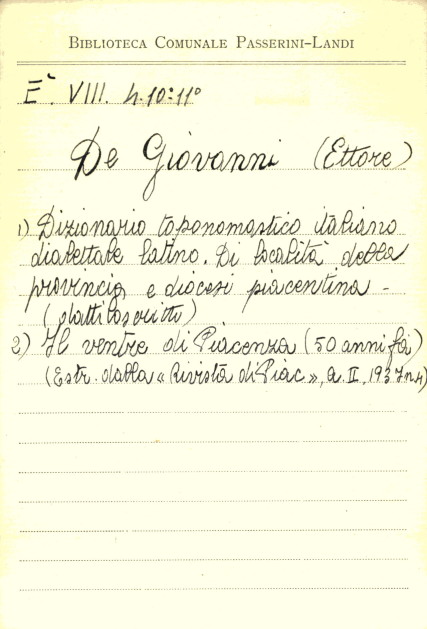 BIBLIOTECA COMUNALE PASSERINI-LANDI
E`. VIII. 4.10:11°
De Giovanni (Ettore)
1) Dizionario toponomastico italiano
dialettale latino. Di località della
provincia e diocesi piacentina -
(dattiloscritto)
2) Il ventre di Piacenza (50 anni fa)
(Estr. dalla « Rivista di Piac », a. II, 1937 n 4)